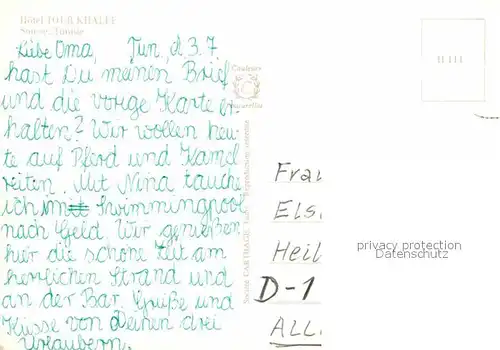 Hôtel TOUR KHALEF
Sousse, Tunisie
Liebe Oma, Tun., d. 3.7
hast Du meinen Brief
und die vorige Karte er-
halten? Wir wollen heu-
te auf Pferd und Kamel
reiten. Mit Nina tauche
ich im Swimmingpool
nach Geld. Wir genießen
hier die schöne Zeit am
herrlichen Strand und
an der Bar. Grüße und
Küsse von Deinen drei
Urlaubern.
Couleurs
CARTHAGE
Frau
Els
Heil
D-1
ALL
privacy protection
Datenschutz